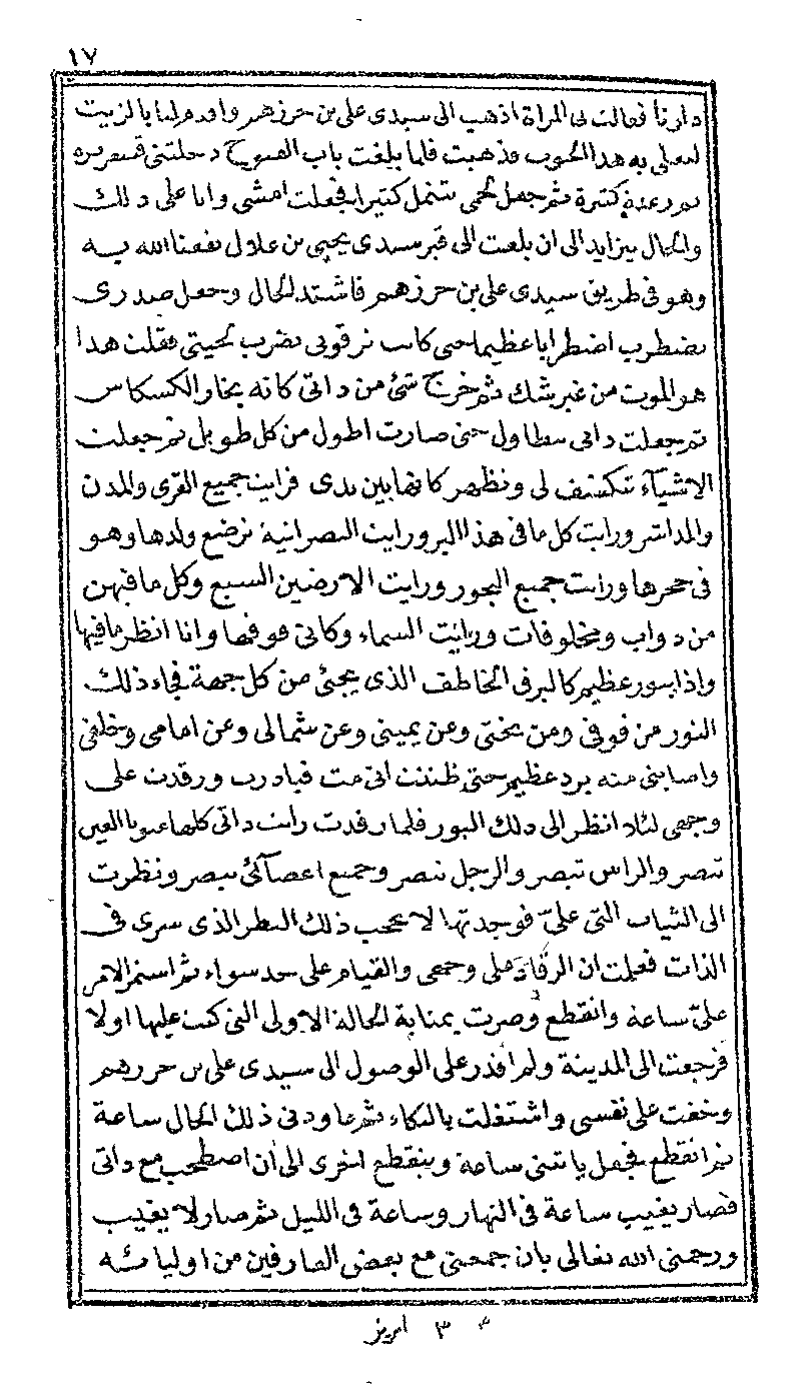 ١٧
دارنا فقالت لى المراة اذهب الى سيدى على بن حرزهم واقدم لنا بالزيت
لنقلى به هذا الحوت فذهبت فلما بلغت باب الفتوح دخلتنى قشعريرة
ثم رعدة كثيرة ثم جعل لحمى يتنمل كثيرا فجعلت امشى وانا على ذلك
والحال يتزايد الى ان بلغت الى قبر سيدى يحيى بن علال نفعنا الله به
وهو فى طريق سيدى على بن حرزهم فاشتد الحال وجعل صدرى
يضطرب اضطرابا عظيما حتى كانت ترقوتى تضرب لحيتى فقلت هذا
هو الموت من غير شك ثم خرج شئ من ذاتى كانه بخار الكسكاس
ثم جعلت ذاتى تتطاول حتى صارت اطول من كل طويل ثم جعلت
الاشيآء تنكشف لى وتظهر كانها بين يدى فرايت جميع القرى والمدن
والمداشر ورايت كل ما فى هذا البر ورايت النصرانية ترضع ولدها وهو
فى حجرها ورايت جميع البحور ورايت الارضين السبع وكل ما فيهن
من دواب ومخلوقات ورايت السماء وكانى فوقها وانا انظر ما فيها
واذا بنور عظيم كالبرق الخاطف الذى يجئ من كل جهة فجاء ذلك
النور من فوقى ومن تحتى وعن يمينى وعن شمالى وعن امامى وخلفى
واصابنى منه برد عظيم حتى ظننت انى مت فبادرت ورقدت على
وجهى لئلا انظر الى ذلك النور فلما رقدت رايت ذاتى كلها عيونا العين
تبصر والراس تبصر والرجل تبصر وجميع اعضآئى تبصر ونظرت
الى الثياب التى علىّ فوجدتها لا تحجب ذلك النظر الذى سرى فى
الذات فعلمت ان الرقاد على وجهى والقيام على حد سواء ثم استمر الامر
علىّ ساعة وانقطع وصرت بمثابة الحالة الاولى التى كنت عليها اولا
فرجعت الى المدينة ولم اقدر على الوصول الى سيدى على بن حرزهم
وخفت على نفسى واشتغلت بالبكاء ثم عاودنى ذلك الحال ساعة
ثم انقطع فجعل ياتينى ساعة وينقطع اخرى الى ان اصطحب مع ذاتى
فصار يغيب ساعة فى النهار وساعة فى الليل ثم صار لا يغيب
ورحمنى الله تعالى بان جمعنى مع بعض العارفين من اوليائه
٣ ابريز